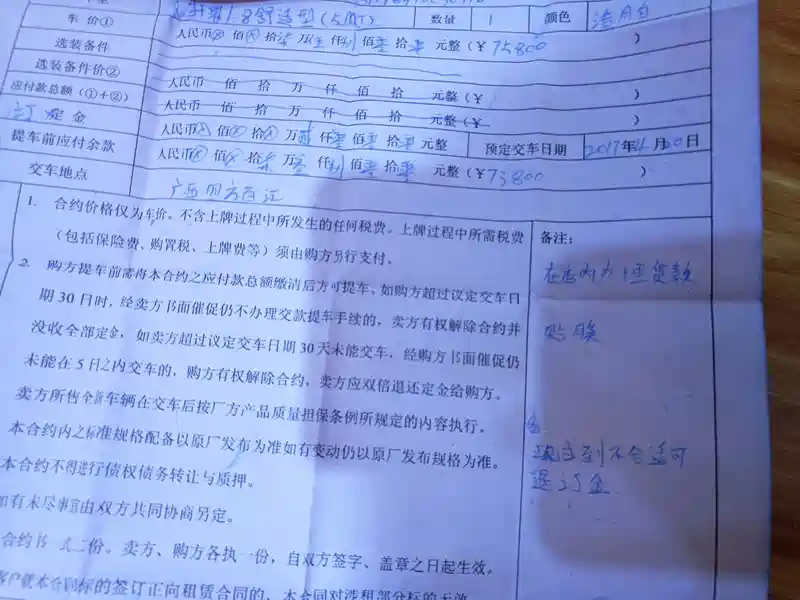 1.8舒适型(5MT) 数量 1 颜色 洁月白
车价① 人民币 佰 拾柒万伍仟捌佰零拾零元整(¥75800 )
选装备件
选装备件价② 人民币 佰 拾 万 仟 佰 拾 元整(¥ )
应付款总额(①+②) 人民币 佰 拾 万 仟 佰 拾 元整(¥ )
订 定金 人民币 佰 拾 万贰仟零佰零拾零元整 预定交车日期 2017年 月20日
提车前应付余款 人民币 佰 拾柒万叁仟捌佰零拾零元整(¥73800 )
交车地点 广西
1. 合约价格仅为车价。不含上牌过程中所发生的任何税费。上牌过程中所需税费
(包括保险费、购置税、上牌费等)须由购方另行支付。
2. 购方提车前需将本合约之应付款总额缴清后方可提车、如购方超过议定交车日
期30日时，经卖方书面催促仍不办理交款提车手续的，卖方有权解除合约并
没收全部定金，如卖方超过议定交车日期30天未能交车，经购方书面催促仍
未能在5日之内交车的，购方有权解除合约，卖方应双倍退还定金给购方。
卖方所售全新车辆在交车后按厂方产品质量担保条例所规定的内容执行。
本合约内之标准规格配备以原厂发布为准如有变动仍以原厂发布规格为准。
本合约不得进行债权债务转让与质押。
如有未尽事宜由双方共同协商另定。
合约书 式二份。卖方、购方各执一份，自双方签字、盖章之日起生效。
客户就本合同标的签订正向租赁合同的，本合同对涉租部分标的无效
备注：
在店内办 贷款
贴膜
到不合适可
退订金